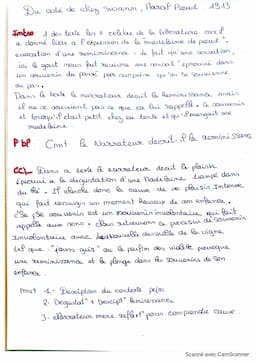 Du coté de chez Swann, Marcel Proust 1913
Intro : 1 des texte les + célèbre de la littérature car il
a donné lieu à l'expression de la madeleine de proust -
évocation d'une réminissance - le fait qu'une sensation,
ici le gout nous fait revivre une sensat° éprouvée dans
un souvenir du passé pas conscient qu'on se souvienne
ou pas.
Dans le texte le narrateur décrit la réminissance mais
il ne se souvient pas ce que ça lui rappelle. Ce souvenir
est lorsqu'il était petit chez sa tante et qu'il mangeait une
madeleine
Pbl Cmt le Narrateur décrit-il la réminissance
CCL Dans ce texte le narrateur décrit le plaisir
éprouvé à la dégustation d'une Madeleine trempé dans
du thé. Il cherche donc la cause de ce plaisir Intense
qui fait ressurgir un moment heureux de son enfance.
Ce souvenir est un souvenir involontaire qui fait
appelle aux sens. Nous retrouvons ce processus de souvenirs
involontaire avec
tel que "jours gris" ou le parfum des violette provoque
une réminissance et le plonge dans les souvenirs de son
enfance.
mvt 1 - Description du contexte
2 - Dégustat° + Descript° réminissance
3 - Narrateur mène réflex° pour comprendre cause.
Scanné avec CamScanner